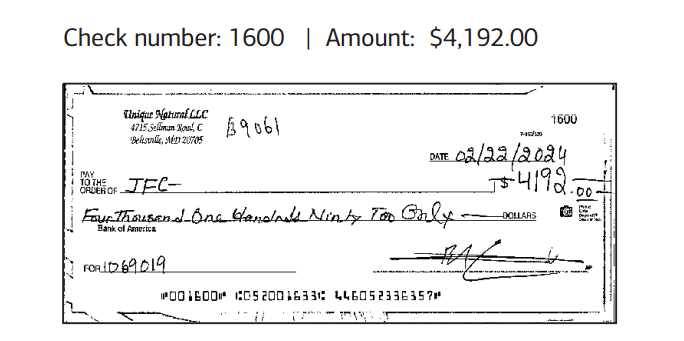 Check number: 1600 | Amount: $4,192.00
Unique Natural LLC
4715 Sellman Road, C
Beltsville, MD 20705
B9061
1600
7-163/520
DATE 02/22/2024
PAY
TO THE
ORDER OF JFC-
$4192.00
Four Thousand One Handrds Ninty Too Only DOLLARS
Bank of America
FOR ID69019
⑈001600⑈ ⑆052001633⑆ 446052336357⑈